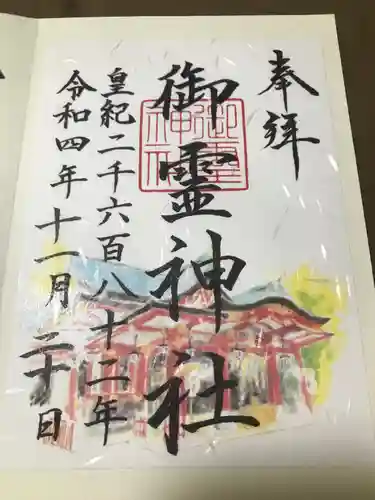 奉拝
御霊神社
皇紀二千六百八十二年
令和四年十一月二十日